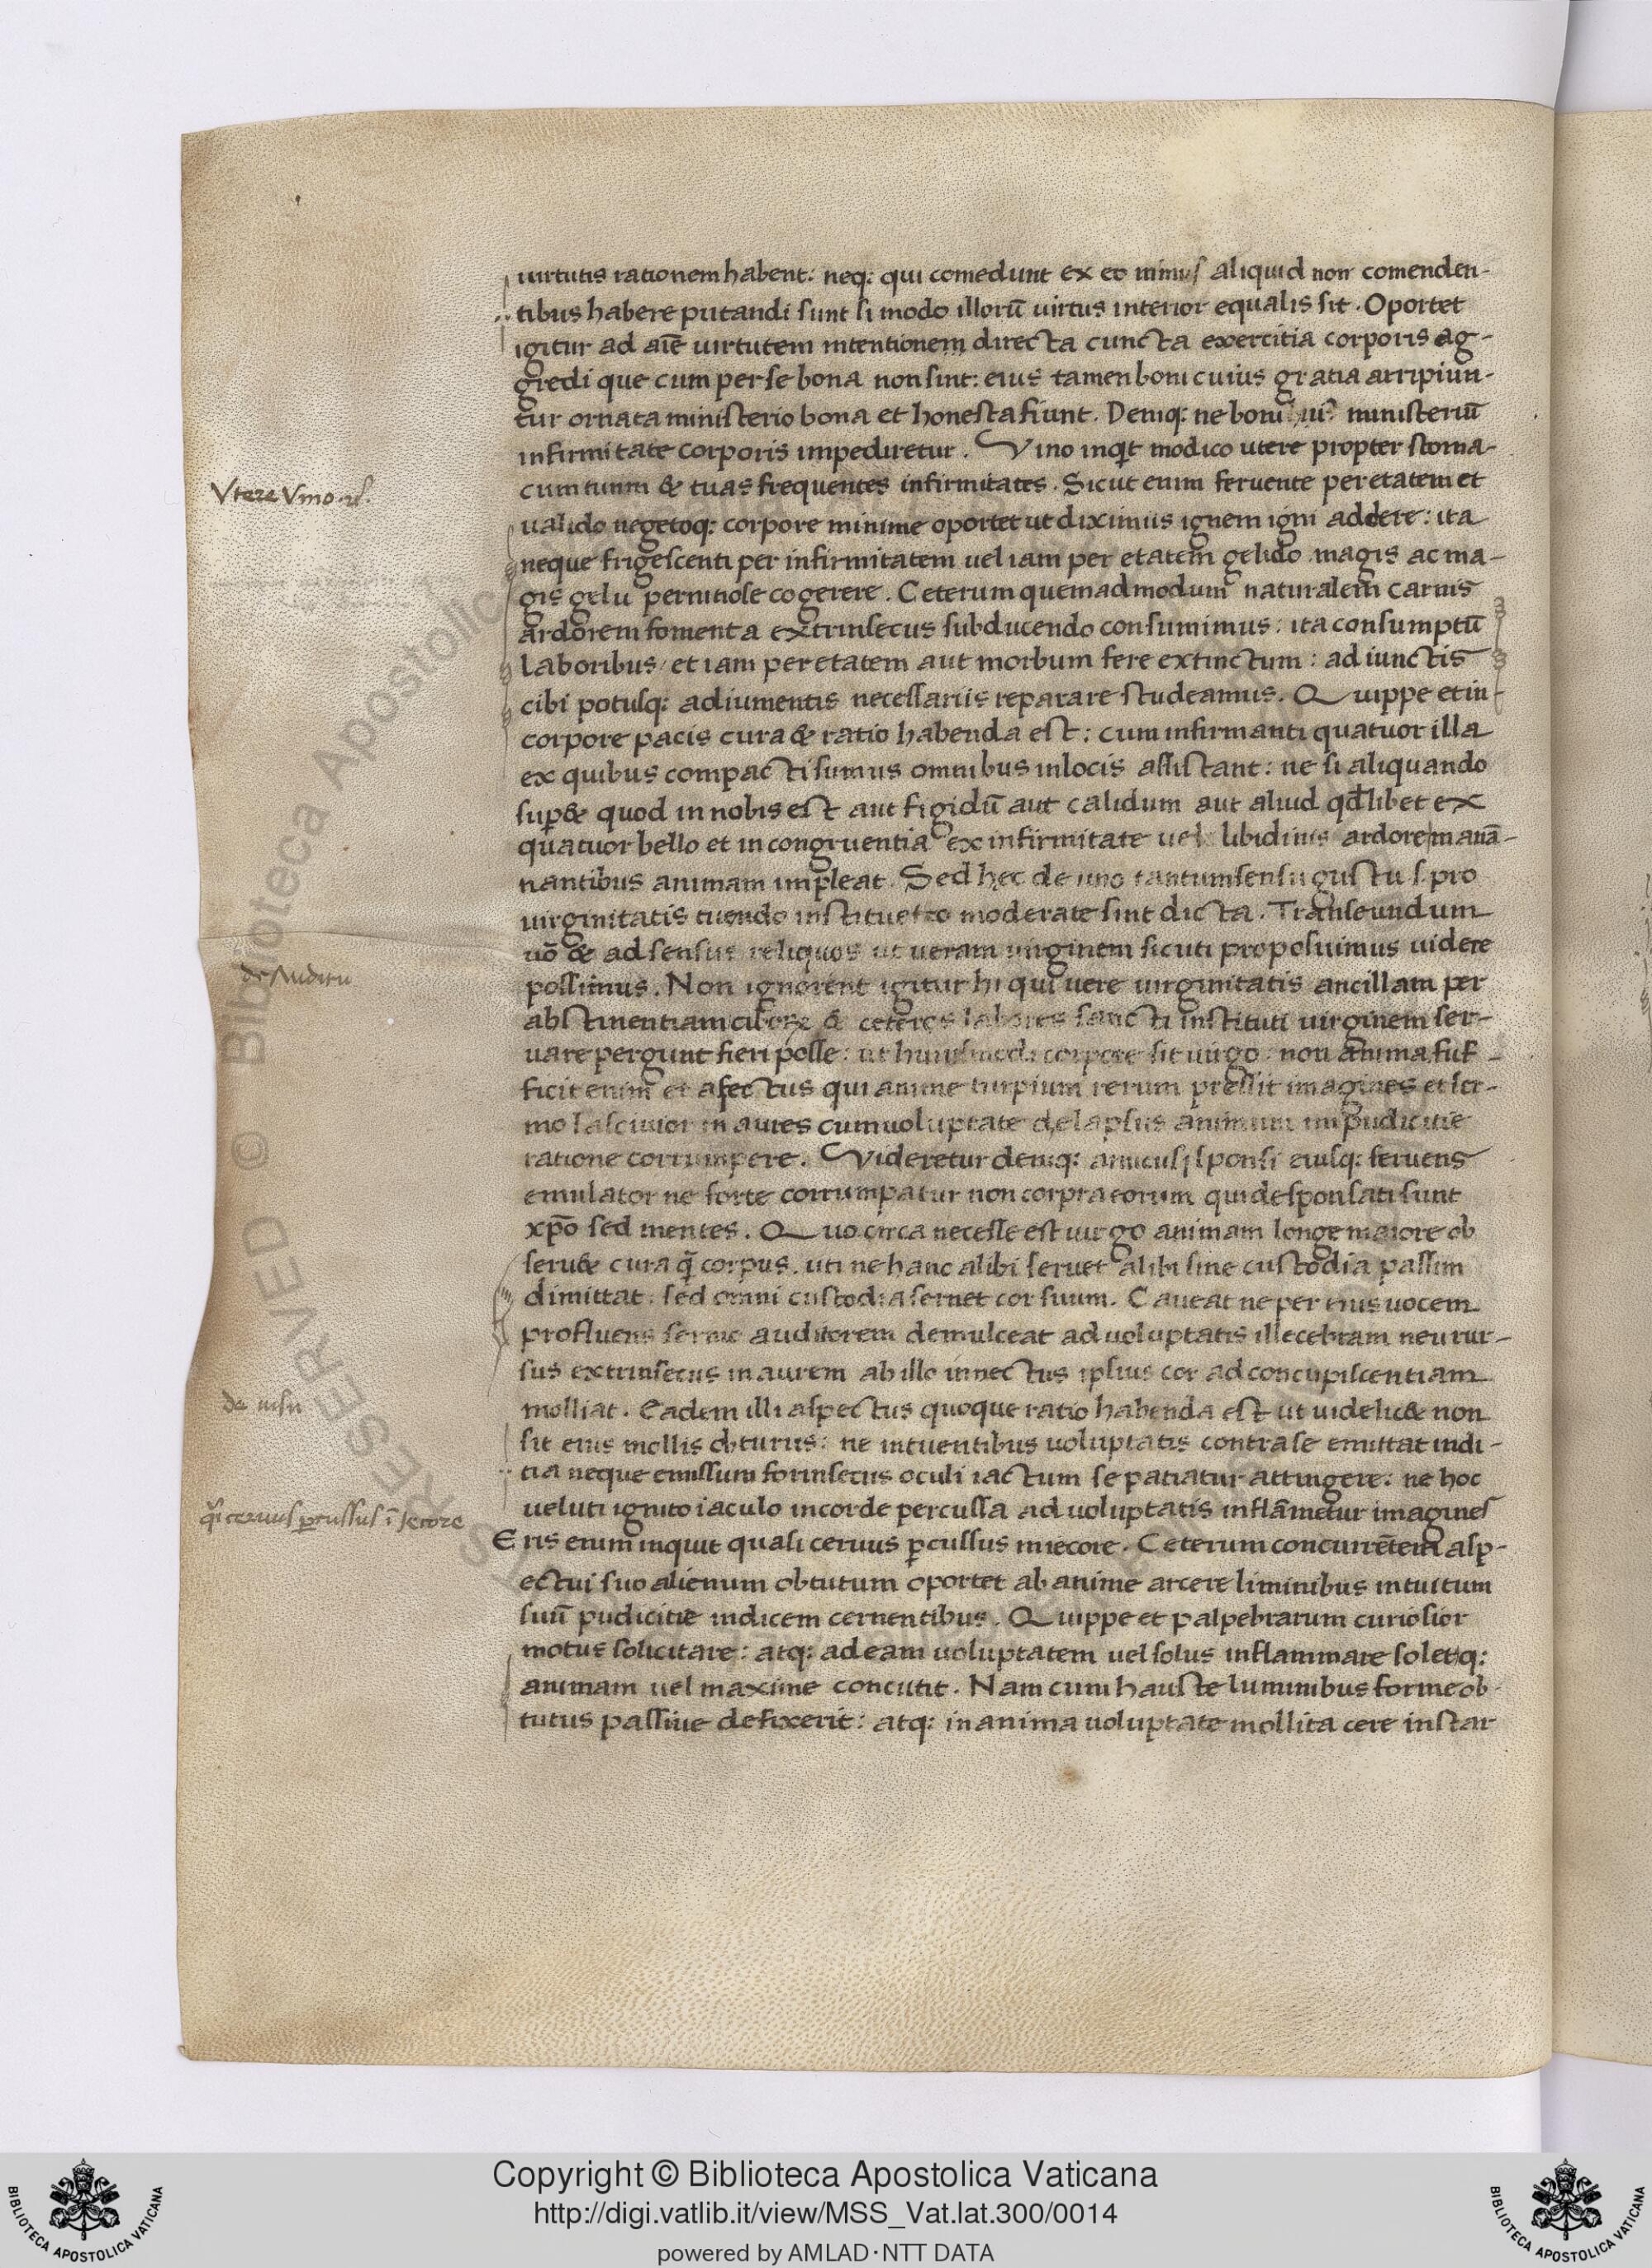 uirtutis rationem habent: neq: qui comedunt ex eo minus aliquid non comenden-
tibus habere putandi sunt si modo illorū uirtus interior equalis sit. Oportet
igitur ad aīe uirtutem intentionem directa cuncta exercitia corporis ag-
gredi que cum per se bona non sint: eius tamen boni cuius gratia arripiun-
tur ornata ministerio bona et honesta fiunt. Deniq: ne boni ministeriū
infirmitate corporis impediretur. Vino inqt modico utere propter stoma-
Vtere Vino
cum tuum & tuas frequentes infirmitates. Sicut enim feruente per etatem et
ualido uegetoq: corpore minime oportet ut diximus ignem igni addere: ita
neque frigescenti per infirmitatem uel iam per etatem gelido magis ac ma-
gis gelu pernitiose cogerere. Ceterum quemadmodum naturalem carnis
ardorem fomenta extrinsecus subducendo consumimus: ita consumptū
laboribus/ et iam per etatem aut morbum fere extinctum: adiunctis
cibi potusq: adiumentis necessariis reparare studeamus. Quippe et in
corpore pacis cura & ratio habenda est: cum infirmanti quatuor illa
ex quibus compacti sumus omnibus in locis assistant: ne si aliquando
sup& quod in nobis est aut figidū aut calidum aut aliud qdlibet ex
quatuor bello et incongruentia ex infirmitate uel libidinis ardore manā-
nantibus animam impleat. Sed hec de uno tantum sensu gustu s. pro
uirginitatis tuendo instituto moderate sint dicta. Transeundum
uō & ad sensus reliquos ut ueram uirginem sicuti proposuimus uidere
de Auditu
possimus. Non ignorent igitur hi qui uere uirginitatis ancillam per
abstinentiam ciborꝝ & ceteros labores sancti instituti uirginem ser-
uare pergunt fieri posse: ut huiusmodi corpore sit uirgo: non anima. suf-
ficit enim et afectus qui anime turpium rerum pressit imagines et ser-
mo lasciuior in aures cum uoluptate delapsus animum impudicitie
ratione corrumpere. Videretur deniq: amicus sponsi eiusq: feruens
emulator ne forte corrumpatur non corpra eorum qui desponsati sunt
xp̄o sed mentes. Quo circa necesse est uirgo animam longe maiore ob
seru& cura q̄ corpus. uti ne hanc alibi seruet alibi sine custodia passim
dimittat. sed omni custodia seruet cor suum. Caueat ne per eius uocem
profluens sermo auditorem demulceat ad uoluptatis illecebram neu rur-
sus extrinsecus in aurem ab illo innectus ipsius cor ad concupiscentiam
de uisu
molliat. Eadem illi aspectus quoque ratio habenda est ut uidelic& non
sit eius mollis obtutus: ne intuentibus uoluptatis contra se emittat indi-
tia neque emissum forinsecus oculi iactum se patiatur attingere: ne hoc
ueluti ignito iaculo in corde percussa ad uoluptatis inflāmetur imagines
qi ceruus percussus ī iecore
Eris enim inquit quasi ceruus pcussus in iecore. Ceterum concurrētem asp-
ectui suo alienum obtutum oportet ab anime arcere liminibus intuitum
suū pudicitie indicem cernentibus. Quippe et palpebrarum curiosior
motus solicitare: atq: ad eam uoluptatem uel solus inflammare soletq:
animam uel maxime concutit. Nam cum hauste luminibus forme ob-
tutus passiue defixerit: atq: in anima uoluptate mollita cere instar
Copyright © Biblioteca Apostolica Vaticana
http://digi.vatlib.it/view/MSS_Vat.lat.300/0014
powered by AMLAD·NTT DATA
BIBLIOTECA APOSTOLICA VATICANA
BIBLIOTECA APOSTOLICA VATICANA